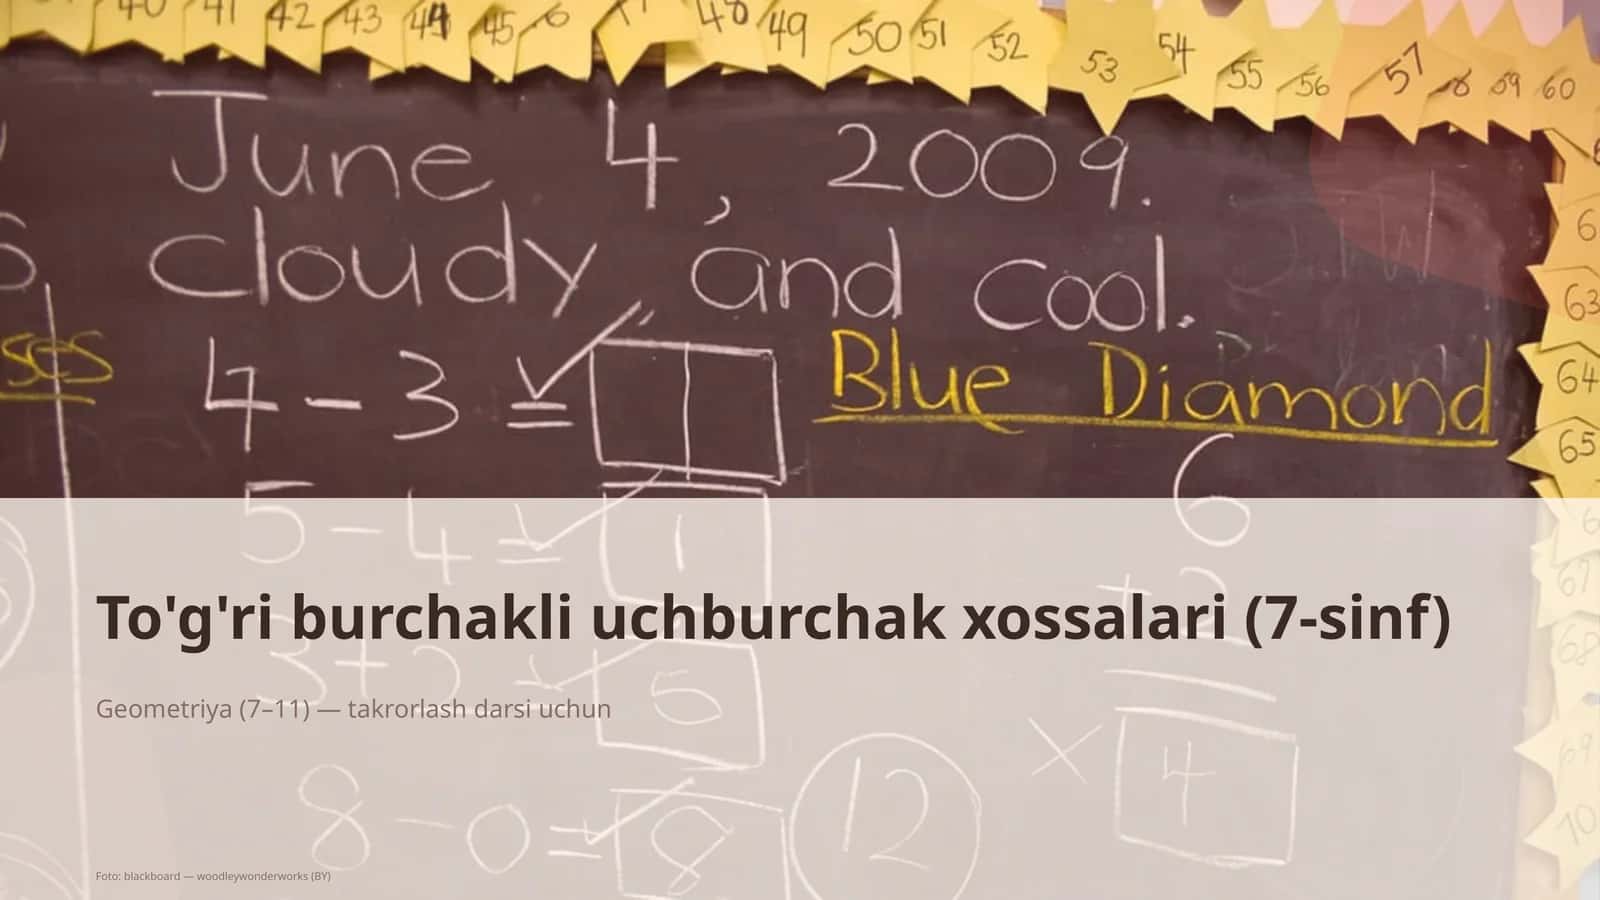 40 41 42 43 44 45 48 49 50 51 52 53 54 55 56 57 58 59 60
June 4, 2009.
cloudy, and cool.
63
64
65
4 - 3 =
Blue Diamond
5 - 4 = 1
6
+ 2
67
To'g'ri burchakli uchburchak xossalari (7-sinf)
68
Geometriya (7–11) — takrorlash darsi uchun
6
× 4
69
8 - 0 = 8
12
70
Foto: blackboard — woodleywonderworks (BY)